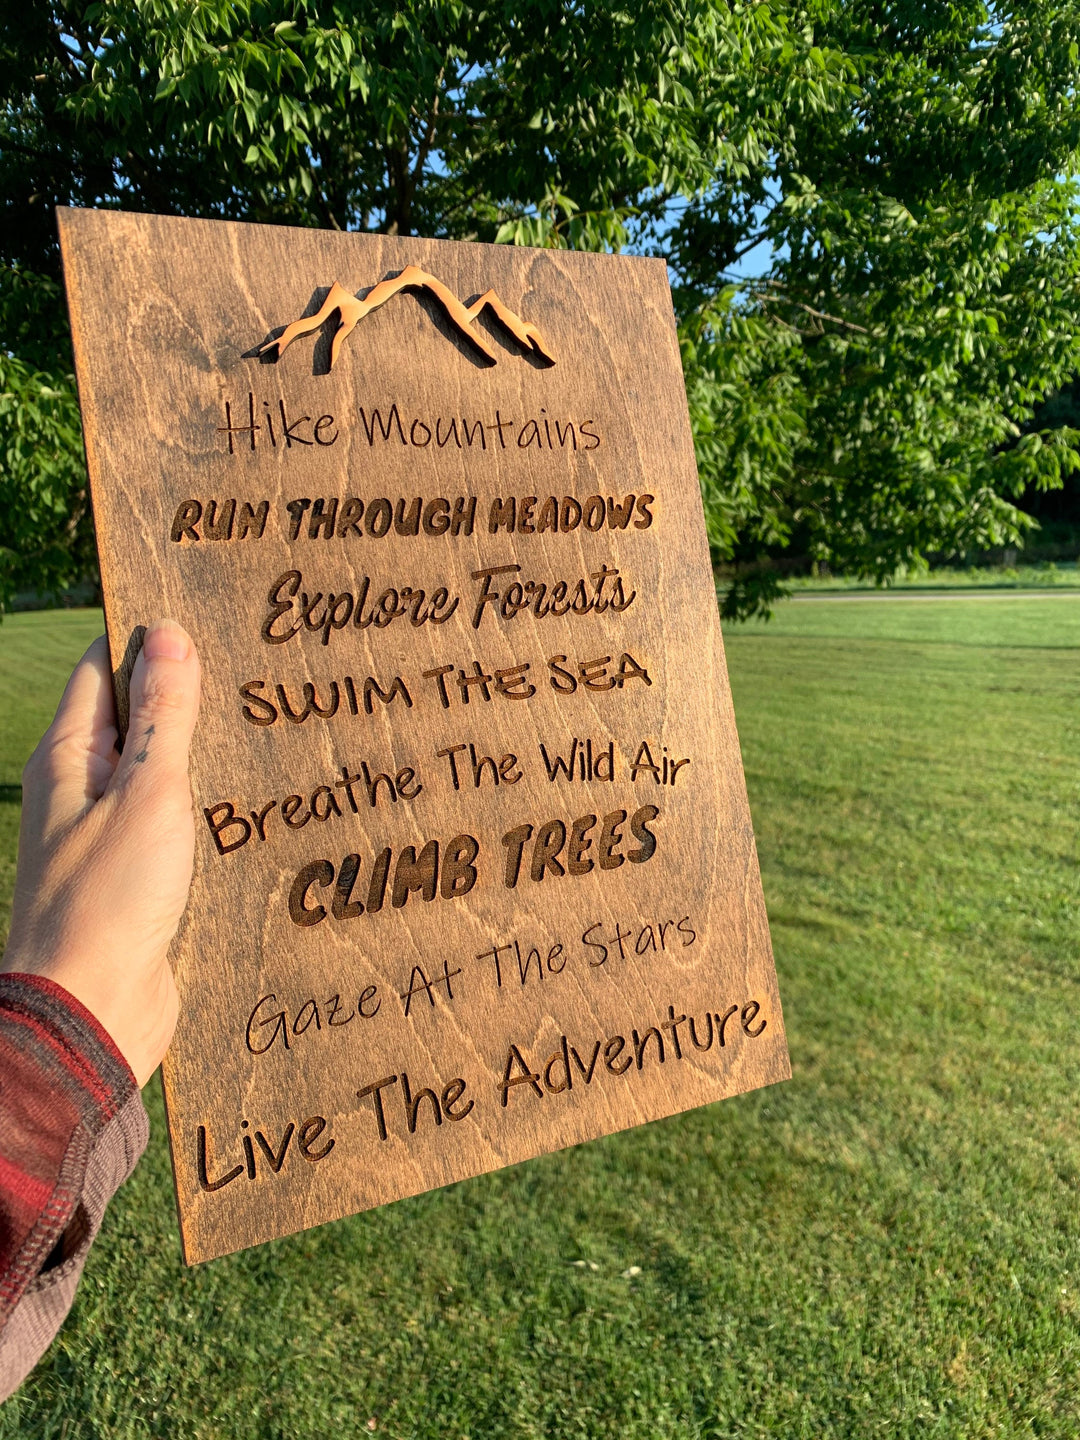 Hike Mountains
RUN THROUGH MEADOWS
Explore Forests
SWIM THE SEA
Breathe The Wild Air
CLIMB TREES
Gaze At The Stars
Live The Adventure